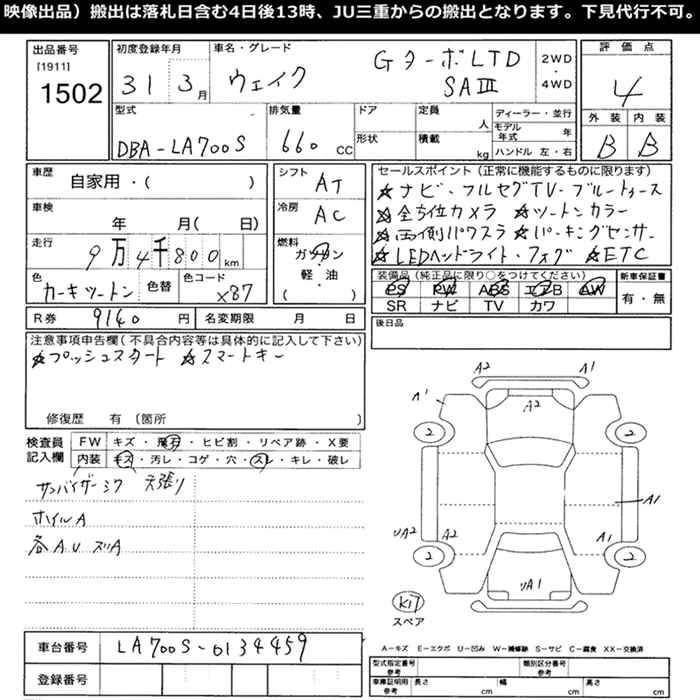 映像出品）搬出は落札日含む4日後13時、JU三重からの搬出となります。下見代行不可。
出品番号
[1911]
1502
初度登録年月
31 3月
車名・グレード
ウェイク
GターボLTD
SAⅢ
2WD
・
4WD
評価点
4
外装 内装
B B
型式
DBA-LA700S
排気量
660 CC
ドア
形状
定員
人
積載
kg
ディーラー・並行
モデル年式 年
ハンドル 左・右
車歴
自家用・( )
車検
年 月( 日)
走行
9万4千800km
色
カーキツートン
色替
色コード
X87
シフト
AT
冷房
AC
燃料
ガソリン
・
軽・油
( )
セールスポイント（正常に機能するものに限ります）
★ナビ・フルセグTV・ブルートゥース
★全方位カメラ ★ツートンカラー
★両側パワスラ ★パーキングセンサー
★LEDヘッドライト・フォグ ★ETC
装備品（純正品に限り○をつけてください）
PS PW ABS エアB AW
SR ナビ TV カワ
新車保証書
有・無
R券 9140円
名変期限 月 日
後日品
注意事項申告欄(不具合内容等は具体的に記入して下さい)
★プッシュスタート ★スマートキー
修復歴 有 〔箇所 〕
検査員
記入欄
FW キズ・飛石・ヒビ割・リペア跡・X要
内装 キズ・汚レ・コゲ・穴・スレ・キレ・破レ
サンバイザーシワ 天張り
ホイルA
各A.U スリA
A2 A1
A1 A2
2 2
A1
UA2 A2 A1
2 2
UA1
K17
スペア
車台番号 LA700S-0134459
登録番号
A－キズ E－エクボ U－凹み W－補修跡 S－サビ C－腐食 XX－交換済
型式指定番号
参考
類別区分番号
参考
車庫証明用
参考
長さ cm
幅 cm
高さ cm